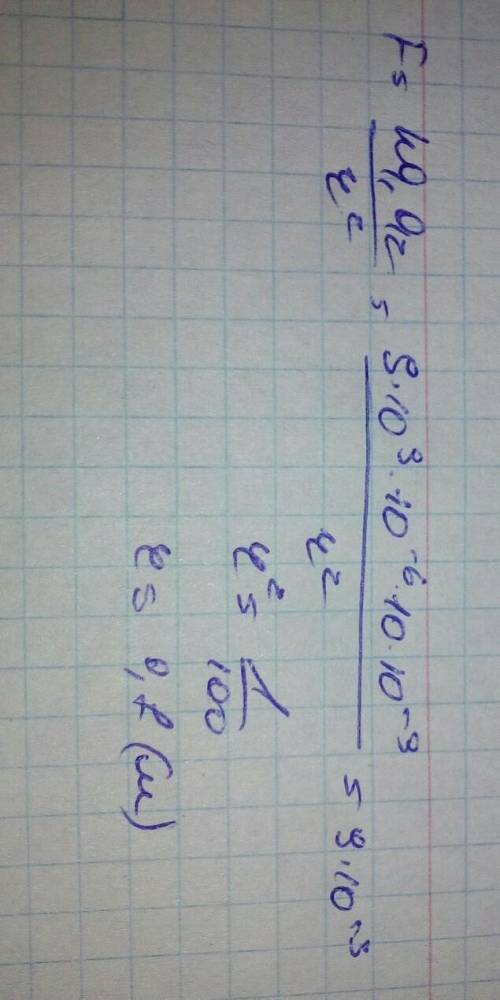 F = kq₁q₂ / r² = 9·10⁹·10⁻⁶·10·10⁻⁹ / r² = 9·10⁻³
r² = 1/100
r = 0,1 (м)